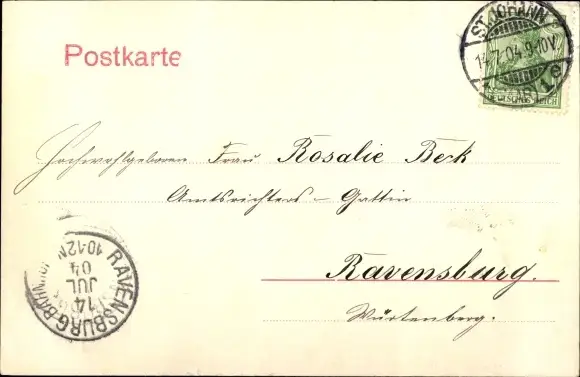 Postkarte
ST. JOHANN
14.7.04.9-10V.
DEUTSCHES REICH
Hochwohlgeboren Frau Rosalie Beck
Amtsrichters - Gattin
Ravensburg.
Würtenberg.
RAVENSBURG-BAHNHOF
14
JUL
04
10-12N